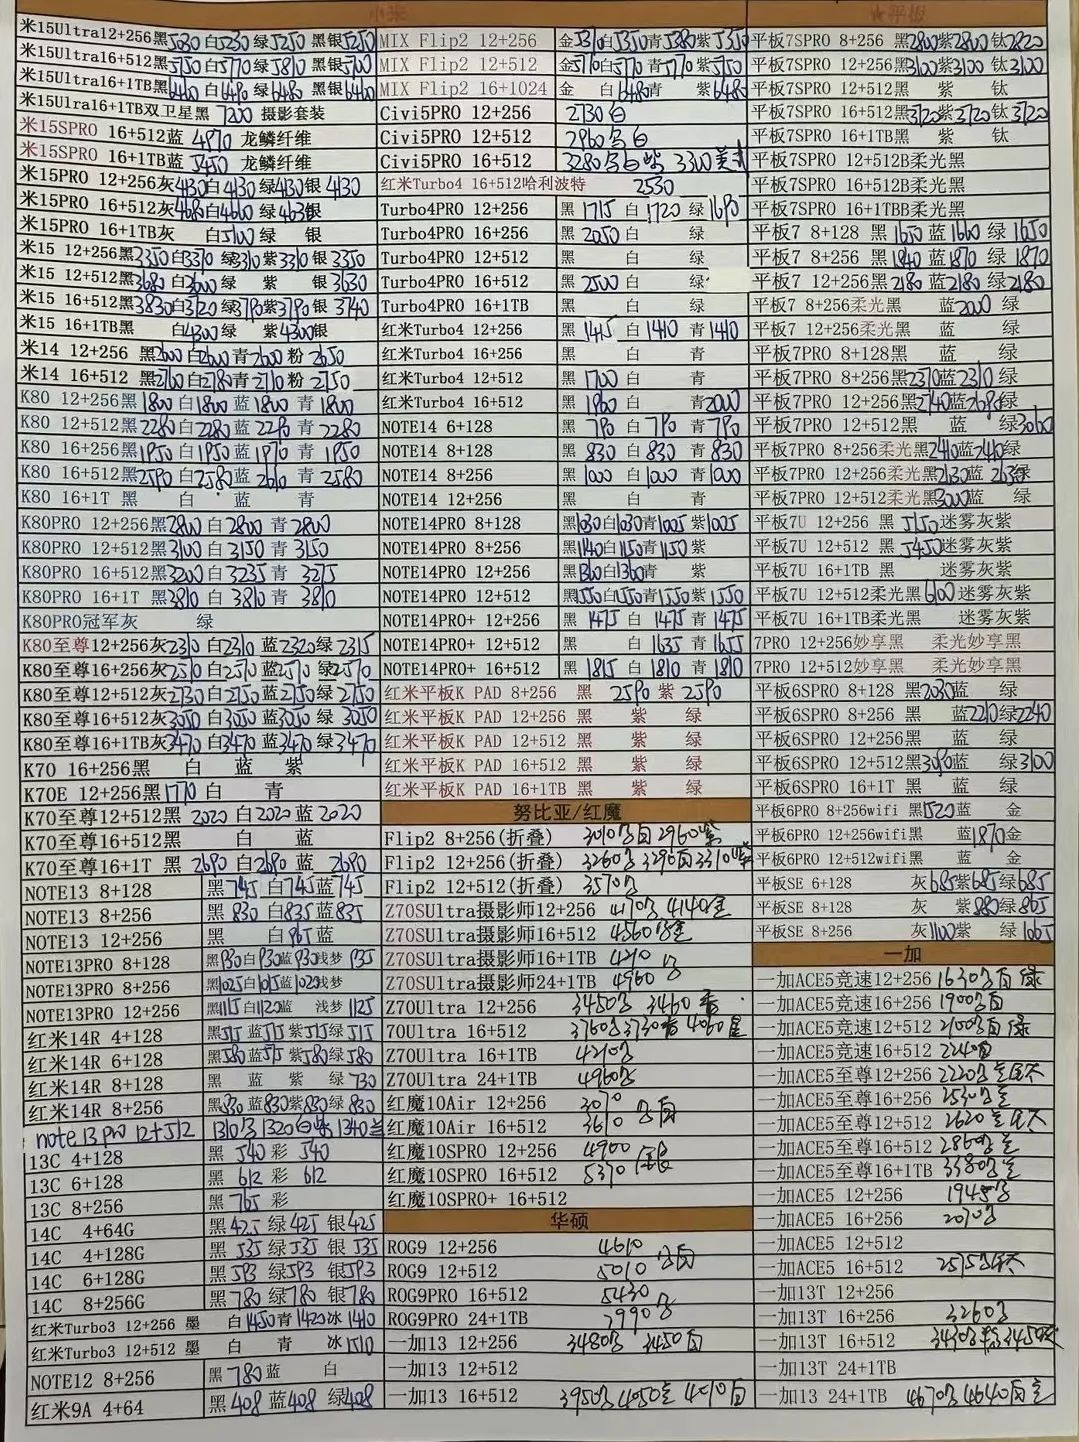 小米
米15Ultra12+256黑5030白5230绿5250黑银5250
米15Ultra16+512黑5750白5770绿5810黑银5700
米15Ultra16+1TB黑6440白6490绿6480黑银6400
米15Ulra16+1TB双卫星黑 7200 摄影套装
米15SPRO 16+512蓝 4970 龙鳞纤维
米15SPRO 16+1TB蓝 5450 龙鳞纤维
米15PRO 12+256灰4130白4130绿4130银 4130
米15PRO 16+512灰4680白4660 绿4630银
米15PRO 16+1TB灰 白5100 绿 银
米15 12+256黑3350白3370 绿3310紫3310 银 3350
米15 12+512黑3680白3600 绿 紫 银 3630
米15 16+512黑3830白3720 绿3790紫3790 银 3740
米15 16+1TB黑 白4300绿 紫4300银
米14 12+256 黑2600白2600青2600粉 2650
米14 16+512 黑2760白2780青2710粉 2750
K80 12+256黑 1800 白1800 蓝 1800 青 1800
K80 12+512黑2280 白2280 蓝 2290 青 2280
K80 16+256黑 1950 白1950 蓝 1970 青 1950
K80 16+512黑2590 白2580蓝 2610 青 2580
K80 16+1T 黑 白 蓝 青
K80PRO 12+256黑2800 白 2800 青 2800
K80PRO 12+512黑3100 白 3150 青 3150
K80PRO 16+512黑3200 白 3235 青 3275
K80PRO 16+1T 黑3810 白 3810 青 3810
K80PRO冠军灰 绿
K80至尊12+256灰2310白2310 蓝2320绿 2315
K80至尊16+256灰2570 白2570 蓝2570 绿2570
K80至尊12+512灰2730白2750 蓝2750绿 2750
K80至尊16+512灰3050 白3050 蓝3050 绿 3050
K80至尊16+1TB灰3470 白3470 蓝3470 绿3470
K70 16+256黑 白 蓝 紫
K70E 12+256黑1770 白 青
K70至尊12+512黑 2020 白2020 蓝 2020
K70至尊16+512黑 白 蓝
K70至尊16+1T 黑 2690 白2690 蓝 2690
NOTE13 8+128 黑745 白745蓝745
NOTE13 8+256 黑 830 白835蓝835
NOTE13 12+256 黑 白965蓝
NOTE13PRO 8+128 黑930白930蓝930浅梦 935
NOTE13PRO 8+256 黑1025白1015蓝1020浅梦
NOTE13PRO 12+256 黑1115白1120蓝 浅梦 1125
红米14R 4+128 黑515 蓝515 紫515绿515
红米14R 6+128 黑580 蓝575 紫580绿580
红米14R 8+128 黑 蓝 紫 绿730
红米14R 8+256 黑830 蓝830紫830绿 830
note 13 pro 12+512 1310黑 1320白紫 1340兰
13C 4+128 黑 540 彩 540
13C 6+128 黑 612 彩 612
13C 8+256 黑 765 彩
14C 4+64G 黑 425 绿425 银425
14C 4+128G 黑 535 绿535 银535
14C 6+128G 黑 593 绿593 银593
14C 8+256G 黑 780 绿780 银780
红米Turbo3 12+256 墨 白1450青1420冰1410
红米Turbo3 12+512 墨 白 青 冰1510
NOTE12 8+256 黑 780蓝 白
红米9A 4+64 黑 408 蓝408 绿408
MIX Flip2 12+256 金5310白5350青5380紫5350
MIX Flip2 12+512 金5770白5770青5770紫5750
MIX Flip2 16+1024 金 白6480青 紫6480
Civi5PRO 12+256 2730白
Civi5PRO 12+512 2960黑白
Civi5PRO 16+512 3280黑白紫 3300美式
红米Turbo4 16+512哈利波特 2530
Turbo4PRO 12+256 黑 1715 白 1720 绿 1690
Turbo4PRO 16+256 黑 2050 白 绿
Turbo4PRO 12+512 黑 白 绿
Turbo4PRO 16+512 黑 2500 白 绿
Turbo4PRO 16+1TB 黑 白 绿
红米Turbo4 12+256 黑 1415 白 1410 青 1410
红米Turbo4 16+256 黑 白 青
红米Turbo4 12+512 黑 1700 白 青
红米Turbo4 16+512 黑 1960 白 青2000
NOTE14 6+128 黑 790 白 790 青 790
NOTE14 8+128 黑 830 白 830 青 830
NOTE14 8+256 黑 1000 白 1000 青 1000
NOTE14 12+256 黑 白 青
NOTE14PRO 8+128 黑1030白1030青1005 紫1005
NOTE14PRO 8+256 黑1140白1150青1150 紫
NOTE14PRO 12+256 黑1360白1360青 紫
NOTE14PRO 12+512 黑1550白1550青1550紫 1550
NOTE14PRO+ 12+256 黑 1475 白 1475 青 1475
NOTE14PRO+ 12+512 黑 白 1635 青 1655
NOTE14PRO+ 16+512 黑 1815 白 1810 青 1810
红米平板K PAD 8+256 黑 2590 紫 2590
红米平板K PAD 12+256 黑 紫 绿
红米平板K PAD 12+512 黑 紫 绿
红米平板K PAD 16+512 黑 紫 绿
红米平板K PAD 16+1TB 黑 紫 绿
努比亚/红魔
Flip2 8+256(折叠) 3010黑白 2960紫
Flip2 12+256(折叠) 3260黑 3290白 3310紫
Flip2 12+512(折叠) 3570黑
Z70SUltra摄影师12+256 4170黑 4140金
Z70SUltra摄影师16+512 4560黑金
Z70SUltra摄影师16+1TB 4710
Z70SUltra摄影师24+1TB 4960 黑
Z70Ultra 12+256 3450黑 3460
70Ultra 16+512 3760黑3730 4060星
Z70Ultra 16+1TB 4210黑
Z70Ultra 24+1TB 4960黑
红魔10Air 12+256 3070
红魔10Air 16+512 3610 黑白
红魔10SPRO 12+256 4900
红魔10SPRO 16+512 5370 银
红魔10SPRO+ 16+512
华硕
ROG9 12+256 4610
ROG9 12+512 5010 黑白
ROG9PRO 16+512 5430
ROG9PRO 24+1TB 7990 黑
一加13 12+256 3480黑 3450白
一加13 12+512
一加13 16+512 3950黑 4050蓝 4010白
平板
平板7SPRO 8+256 黑2800紫2800 钛2820
平板7SPRO 12+256黑3100紫3100 钛 3100
平板7SPRO 12+512黑 紫 钛
平板7SPRO 16+512黑3720紫3720 钛3720
平板7SPRO 16+1TB黑 紫 钛
平板7SPRO 12+256B柔光黑
平板7SPRO 12+512B柔光黑
平板7SPRO 16+1TBB柔光黑
平板7 8+128 黑 1650 蓝 1660 绿 1650
平板7 8+256 黑 1840 蓝 1870 绿 1870
平板7 12+256黑2180 蓝 2180 绿2180
平板7 8+256柔光黑 蓝2000 绿
平板7 12+256柔光黑 蓝 绿
平板7PRO 8+128黑 蓝 绿
平板7PRO 8+256黑2370蓝2310 绿
平板7PRO 12+256黑2740蓝2690绿
平板7PRO 12+512黑 蓝 绿3060
平板7PRO 8+256柔光黑2410蓝2410绿
平板7PRO 12+256柔光黑2630蓝 2630绿
平板7PRO 12+512柔光黑3000蓝 绿
平板7U 12+256 黑 5150迷雾灰紫
平板7U 12+512 黑 5450迷雾灰紫
平板7U 16+1TB 黑 迷雾灰紫
平板7U 12+512柔光黑6100迷雾灰紫
平板7U 16+1TB柔光黑 迷雾灰紫
7PRO 12+256妙享黑 柔光妙享黑
7PRO 12+512妙享黑 柔光妙享黑
平板6SPRO 8+128 黑2030蓝 绿
平板6SPRO 8+256 黑 蓝2210绿2240
平板6SPRO 12+256黑 蓝 绿
平板6SPRO 12+512黑3090蓝 绿3100
平板6SPRO 16+1T黑 蓝 绿
平板6PRO 8+256wifi 黑1520蓝 金
平板6PRO 12+256wifi黑 蓝1870金
平板6PRO 12+512wifi黑 蓝 金
平板SE 6+128 灰 685紫685绿685
平板SE 8+128 灰 紫 880绿865
平板SE 8+256 灰1100紫 绿 1065
一加
一加ACE5竞速12+256 1630黑白 绿
一加ACE5竞速16+256 1900黑白
一加ACE5竞速12+512 2100黑白绿
一加ACE5竞速16+512 2240白
一加ACE5至尊12+256 2220黑
一加ACE5至尊16+256 2530黑
一加ACE5至尊12+512 2620
一加ACE5至尊16+512 2860黑
一加ACE5至尊16+1TB 3380黑
一加ACE5 12+256 1945黑
一加ACE5 16+256 2070黑
一加ACE5 12+512
一加ACE5 16+512 2575黑
一加13T 12+256
一加13T 16+256 3260黑
一加13T 16+512 3430黑粉3450灰
一加13T 24+1TB
一加13 24+1TB 4670黑 4640白